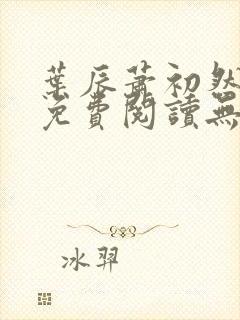 葉辰蕭初然
免費閱讀無
冰羿